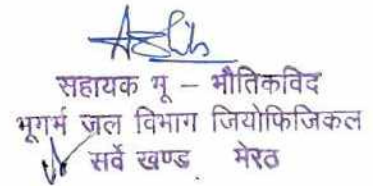 सहायक भू – भौतिकविद
भूगर्भ जल विभाग जियोफिजिकल
सर्वे खण्ड मेरठ